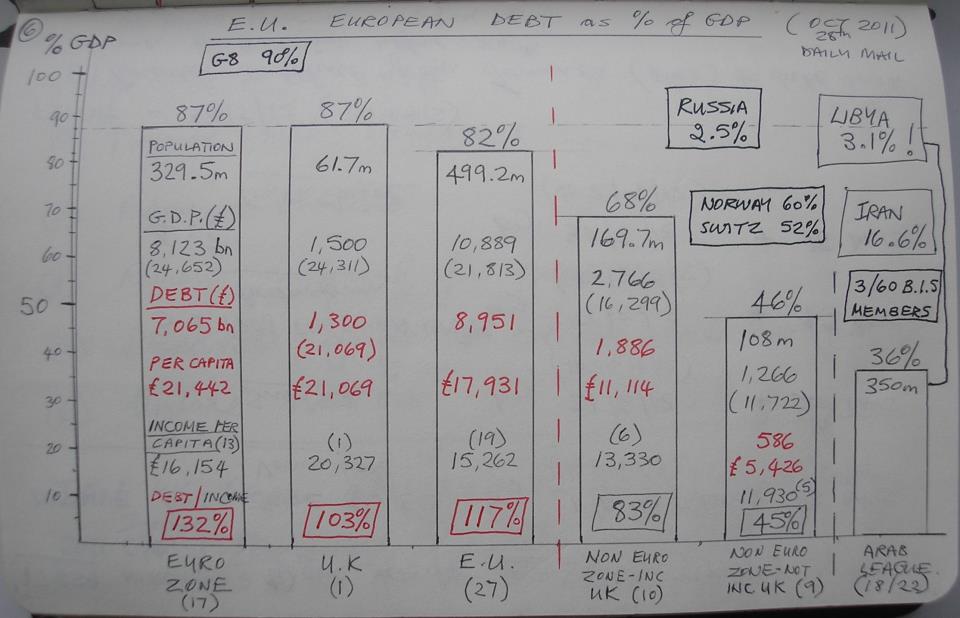 6
E.U. EUROPEAN DEBT as % of GDP
(OCT 28th 2011)
DAILY MAIL
% GDP
G8 90%
100
90
80
70
60
50
40
30
20
10
87%
POPULATION
329.5m
G.D.P.(£)
8,123 bn
(24,652)
DEBT(£)
7,065 bn
PER CAPITA
£21,442
INCOME PER
CAPITA(13)
£16,154
DEBT/INCOME
132%
EURO
ZONE
(17)
87%
61.7m
1,500
(24,311)
1,300
(21,069)
£21,069
(1)
20,327
103%
U.K
(1)
82%
499.2m
10,889
(21,813)
8,951
£17,931
(19)
15,262
117%
E.U.
(27)
68%
169.7m
2,766
(16,299)
1,886
£11,114
(6)
13,330
83%
NON EURO
ZONE-INC
UK (10)
RUSSIA
2.5%
NORWAY 60%
SWITZ 52%
46%
108m
1,266
(11,722)
586
£5,426
11,930(5)
45%
NON EURO
ZONE-NOT
INC UK (9)
LIBYA
3.1%!
IRAN
16.6%
3/60 B.I.S
MEMBERS
36%
350m
ARAB
LEAGUE
(18/22)